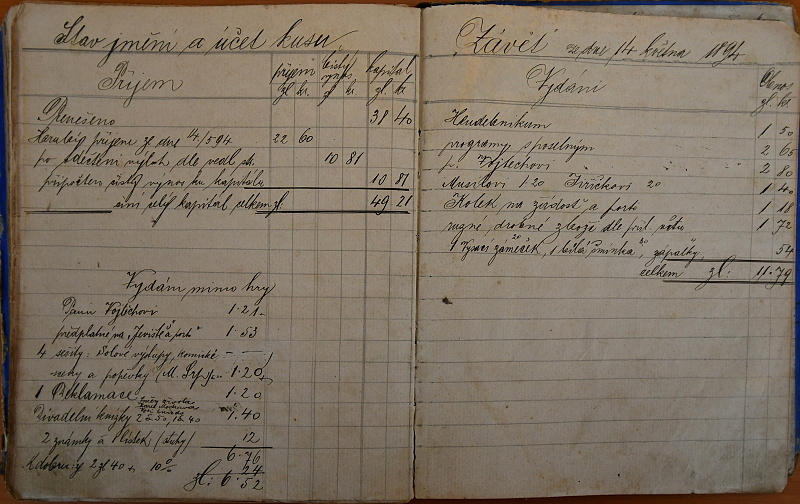 Stav jmění a účet kusu
Příjem
příjem čistý výnos kapitál
zl. kr. zl. kr. zl. kr.
Přenešeno 38 40
příjem ze dne 14/5 94 22 60
po odečtení výloh dle vedl. str. 10 81
připočten čistý výnos ku kapitálu 10 81
činí celý kapitál celkem zl. 49 21
Vydání mimo hry
Panu Vojtěchovi 1·21
předplatné na „Jeviště“ a porto 1·53
4 sešity: Solové výstupy, komické
a popěvky (M. 1·20
1 Reklamace 1·20
Divadelní knížky 2 à 50, 1 à 40 1.40
2 známky a lístek 12
6·76
2 zl 40 10% 24
zl: 6·52
Závěť ze dne 14 května 1894
Vydání
Obnos
zl. kr.
Hudebníkům 1 50
programy s poselným 2 65
p. Vojtěchovi 2 80
Musilovi 1·20 Jiříčkovi 20 1 40
Kolek na žádosť a porto 1 18
různé drobné zboží dle příl. účtu 1 72
1 Visací zámeček, 1 bílá zápalky 54
celkem zl: 11·79